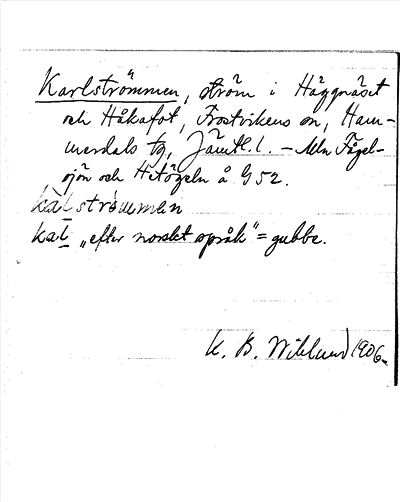 Karlströmmen, ström i Häggnäset
och Håkafot, Frostvikens sn, Ham-
merdals tg, Jämtl. l. – Mln Fågel-
sjön och Hetögeln å G 52.
kal strömmen
kal „efter norskt språk" = gubbe.
K. B. Wiklund 1906.